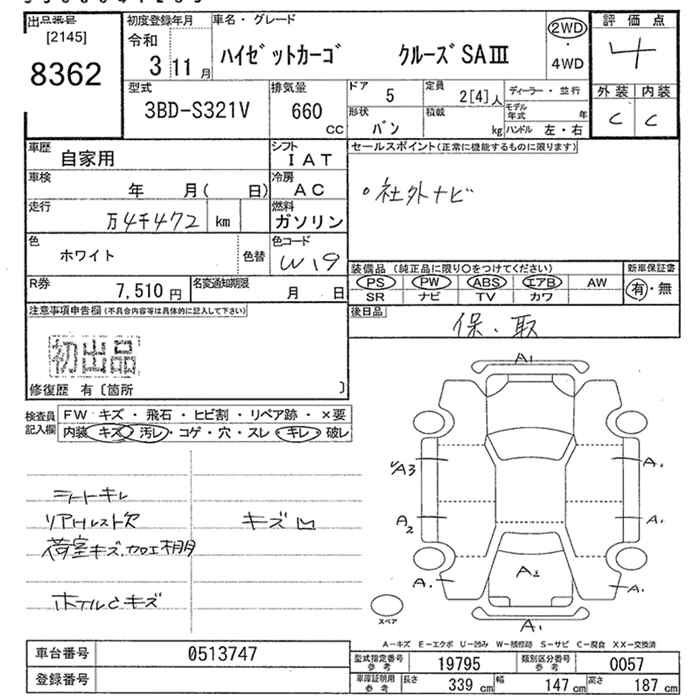 出品番号
[2145]
8362
初度登録年月
令和
3 11月
車名・グレード
ハイゼットカーゴ クルーズSAⅢ
2WD
・
4WD
評価点
4
外装 内装
C C
型式
3BD-S321V
排気量
660
CC
ドア 5
定員 2[4]人
形状 バン
積載 kg
ディーラー・並行
モデル年式 年
ハンドル 左・右
車歴 自家用
シフト
IAT
車検 年 月( 日)
冷房
AC
走行 万4千472 km
燃料
ガソリン
色 ホワイト 色替
色コード
W19
R券 7,510円
名変通知期限 月 日
セールスポイント(正常に機能するものに限ります)
○社外ナビ
装備品 (純正品に限り○をつけてください)
PS PW ABS エアB AW
SR ナビ TV カワ
新車保証書
有・無
後日品
保、取
注意事項申告欄(不具合内容等は具体的に記入して下さい)
初出品
修復歴 有〔箇所 〕
検査員記入欄
FW キズ・飛石・ヒビ割・リペア跡・×要
内装 キズ・汚レ・コゲ・穴・スレ・キレ・破レ
シートキレ
リアHレスト欠
キズ凹
荷室キズ、加工棚
ホイルCキズ
A1
A3
A2
A.
A.
A.
A.
A.
A1
スペア
A－キズ E－エクボ U－凹み W－補修跡 S－サビ C－腐食 XX－交換済
車台番号 0513747
登録番号
型式指定番号 参考 19795
類別区分番号 参考 0057
車庫証明用 参考 長さ 339cm 幅 147cm 高さ 187cm